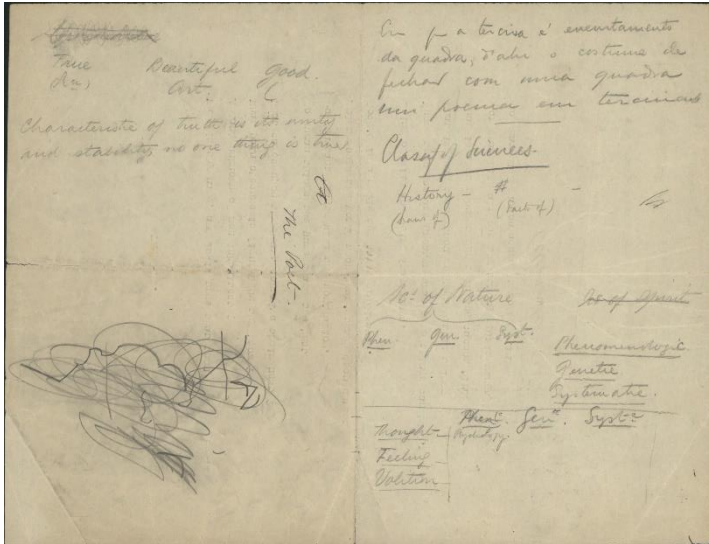 True Beautiful Good.
Art.
Characteristic of truth is its unity
and stability no one thing is true
to
The Poet.
a terceira é encurtamento
da quadra, d'ahi o costume de
fechar com uma quadra
um poema em
Classif. of Sciences.
History —
(Laws of) (Facts of)
Sc. of Nature Sc. of Spirit
Phen Gen. Syst.
Phenomenologic
Genetic
Systematic.
Gen. Syst.
Thought Psychology
Feeling
Volition